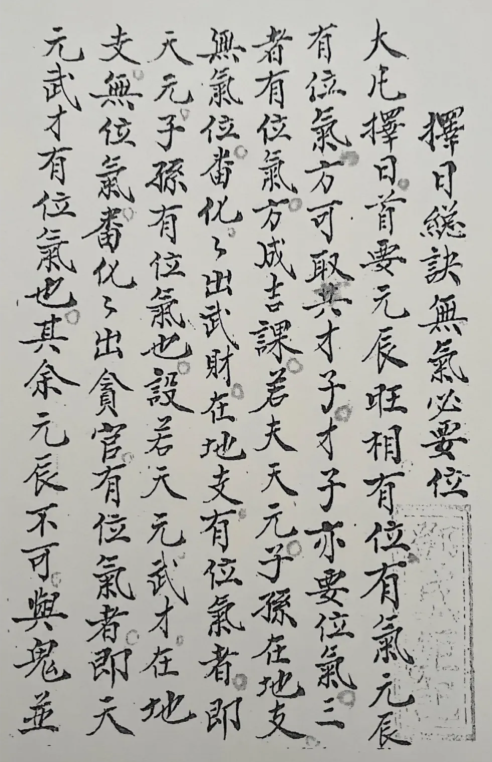 擇日總訣無氣必要位
大凡擇日首要元辰旺相有位有氣元辰
有位氣方可取其才子才子亦要位氣三
者有位氣方成吉課若夫天元子孫在地支
無氣位畨化〻出武財在地支有位氣者即
天元子孫有位氣也設若天元武才在地
支無位氣畨化〻出貪官有位氣者即天
元武才有位氣也其余元辰不可與鬼並